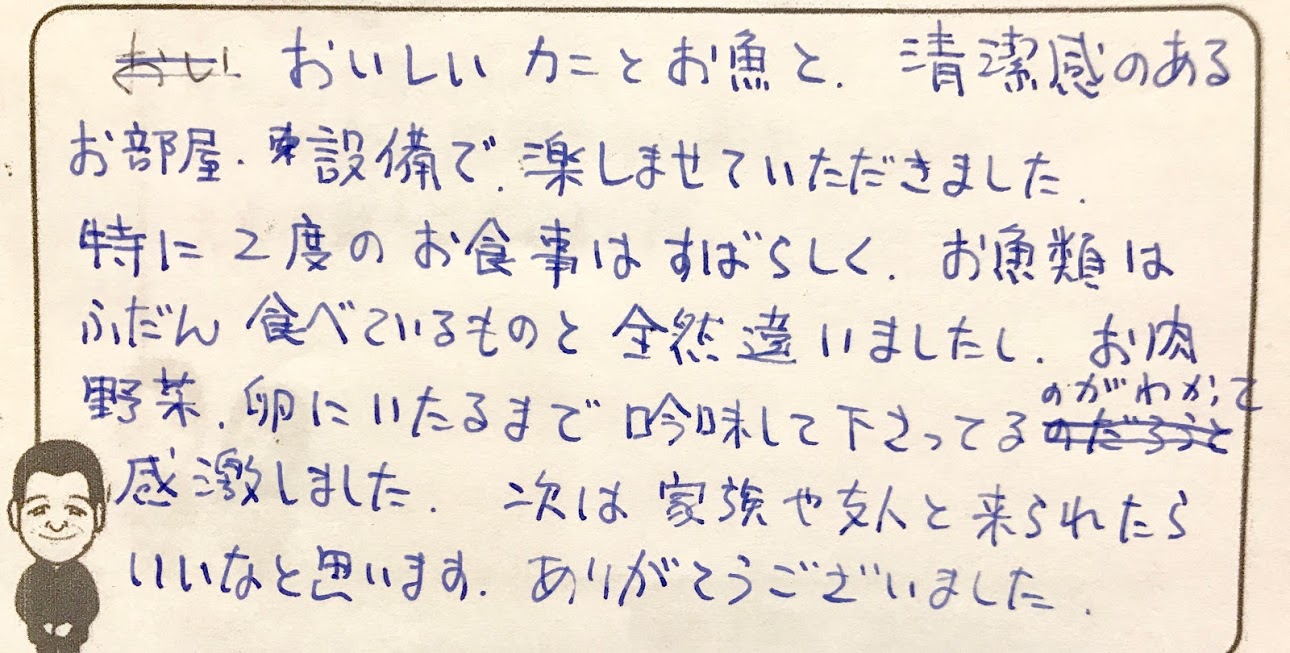 おいし おいしいカニとお魚と、清潔感のある
お部屋、設備で、楽しませていただきました。
特に2度のお食事はすばらしく、お魚類は
ふだん食べているものと全然違いましたし、お肉
野菜、卵にいたるまで吟味して下さってるのだろうと
のがわかって
感激しました。次は家族や友人と来られたら
いいなと思います。ありがとうございました。